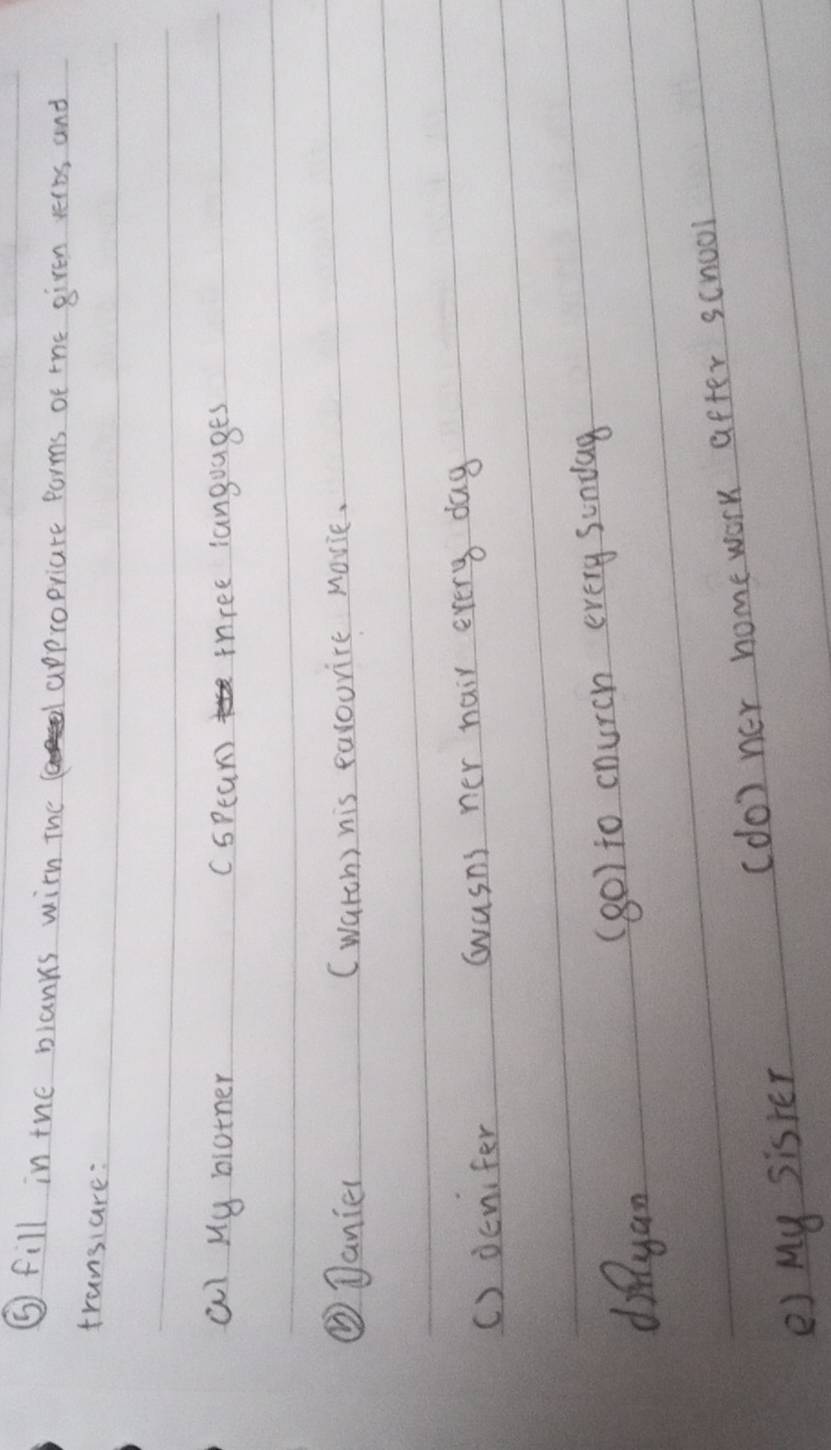 ⑤ fill in the blanks with the appropriate forms of the given verbs, and
translate:
a) My brother (speak) three languages
ⓑ Daniel (watch) his favourite movie.
c) Jenifer (wash) her hair every day
d) Ryan (go) to church every sunday
e) My sister (do) her home work after school